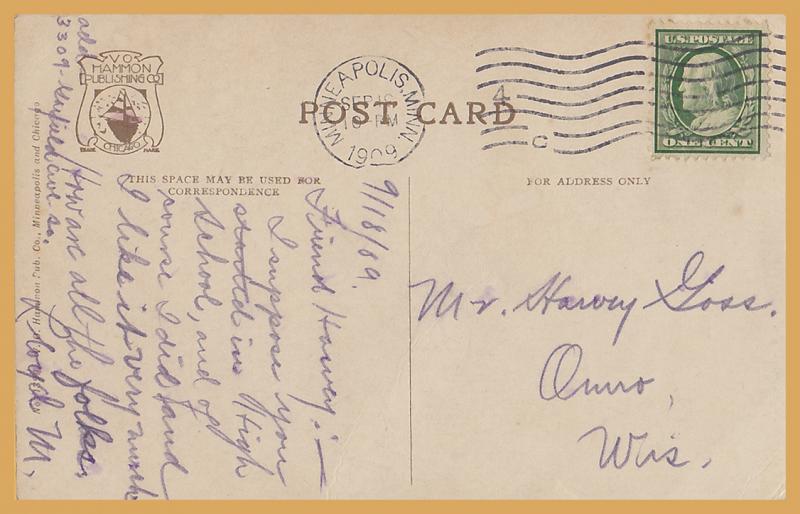 V.O.
HAMMON
PUBLISHING CO
TRADE MARK
CHICAGO
MINNEAPOLIS, MINN.
SEP 18
PM
1909
4
C
U.S. POSTAGE
ONE CENT
POST CARD
THIS SPACE MAY BE USED FOR
CORRESPONDENCE
FOR ADDRESS ONLY
Hammon Pub. Co., Minneapolis and Chicago
9/18/09.
Friend Harvey:—
I suppose you
started in High
School, and of
course I did and
I like it very much
How are all the folks,
Lloyd M.
add
3309- ave so.
Mr. Harvey Goss.
Omro,
Wis.